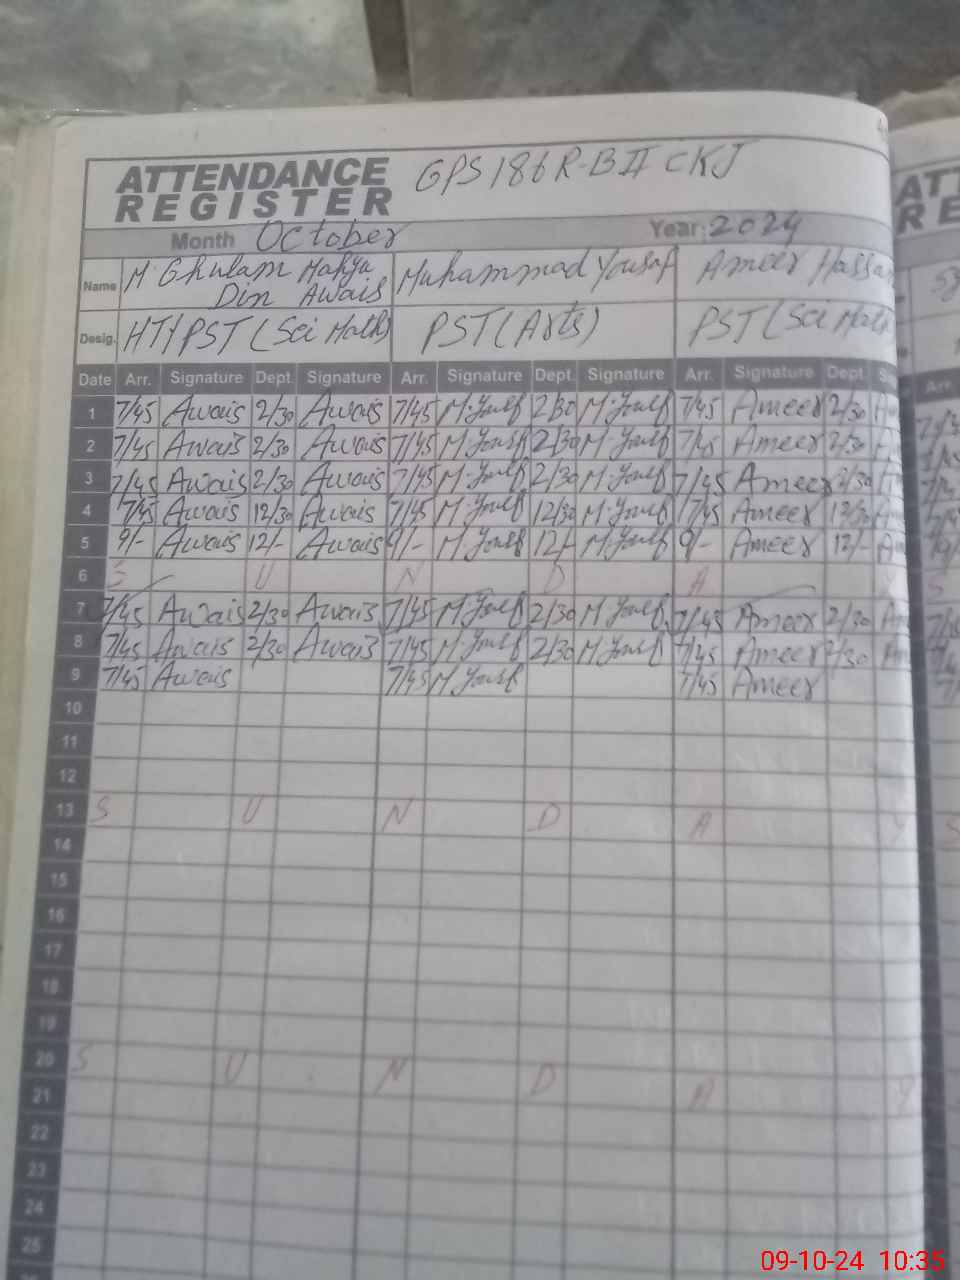 ATTENDANCE REGISTER GPS 186 R-B II CKJ
Month October Year: 2024
Name M. Ghulam Mahya Din Awais Muhammad Yousaf Ameer Hassan
Desig. HT/PST (Sci Maths) PST (Arts) PST (Sci Math
Date Arr. Signature Dept. Signature Arr. Signature Dept. Signature Arr. Signature Dept. S
1 7/45 Awais 2/30 Awais 7/45 M.Yousf 2/30 M.Yousf 7/45 Ameer 2/30
2 7/45 Awais 2/30 Awais 7/45 M.Yousf 2/30 M.Yousf 7/45 Ameer 2/30
3 7/45 Awais 2/30 Awais 7/45 M.Yousf 2/30 M.Yousf 7/45 Ameer 2/30
4 7/45 Awais 12/30 Awais 7/45 M.Yousf 12/30 M.Yousf 7/45 Ameer 12/30
5 9/- Awais 12/- Awais 9/- M.Yousf 12/- M.Yousf 9/- Ameer 12/- Am
6 S U N D A Y S
7 7/45 Awais 2/30 Awais 7/45 M.Yousf 2/30 M.Yousf 7/45 Ameer 2/30 Am
8 7/45 Awais 2/30 Awais 7/45 M.Yousf 2/30 M.Yousf 7/45 Ameer 2/30 Am
9 7/45 Awais 7/45 M.Yousf 7/45 Ameer
10
11
12
13 S U N D A Y S
14
15
16
17
18
19
20 S U N D A Y
21
22
23
24
25
09-10-24 10:35